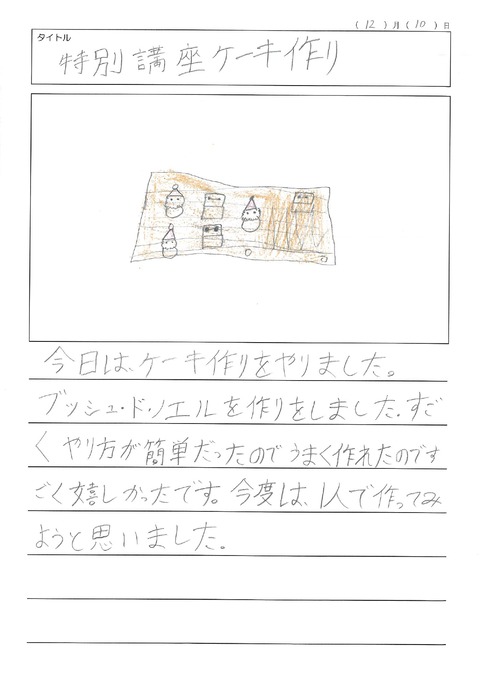 (12)月(10)日
タイトル
特別講座ケーキ作り
今日は、ケーキ作りをやりました。
ブッシュ・ド・ノエルを作りをしました。すご
くやり方が簡単だったのでうまく作れたのです
ごく嬉しかったです。今度は、1人で作ってみ
ようと思いました。